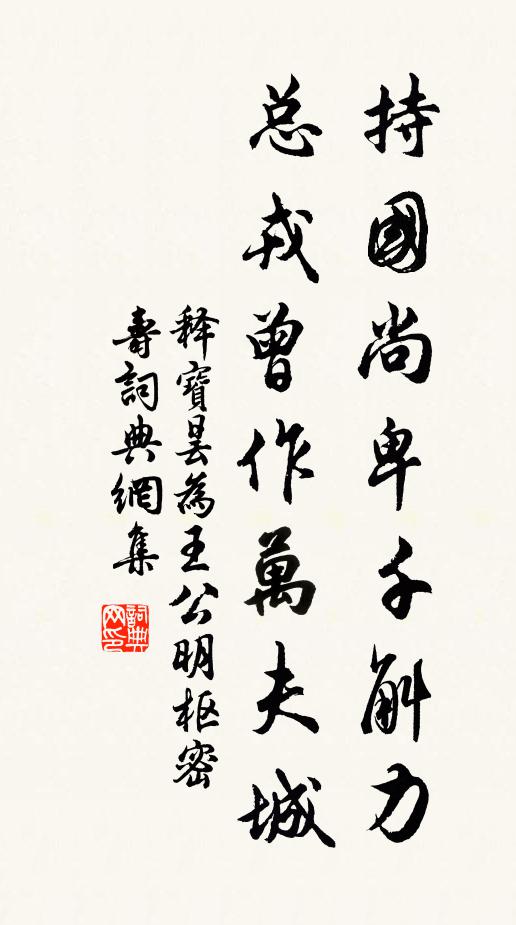 持國尚卑千斛力
总戎曾作萬夫城
释寶曇為王公明枢密
壽詞典網集
詞典网印